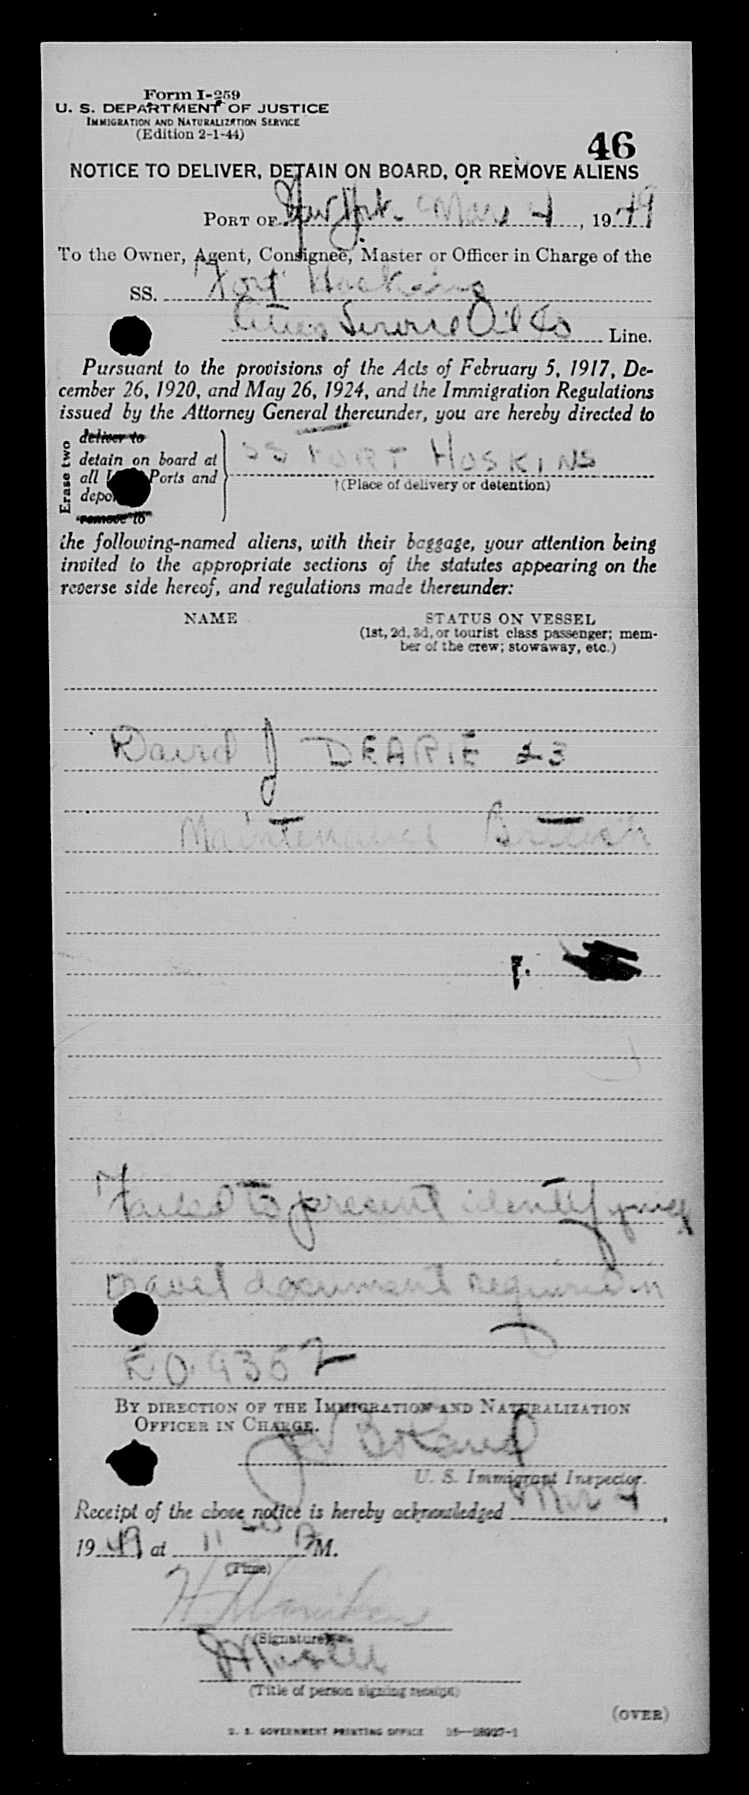 Form I-259
U. S. DEPARTMENT OF JUSTICE
IMMIGRATION AND NATURALIZATION SERVICE
(Edition 2-1-44)
46
NOTICE TO DELIVER, DETAIN ON BOARD, OR REMOVE ALIENS
PORT OF New York Mar 4, 1949
To the Owner, Agent, Consignee, Master or Officer in Charge of the
SS. Fort Hoskins
Cities Service Oil Co Line.
Pursuant to the provisions of the Acts of February 5, 1917, De-
cember 26, 1920, and May 26, 1924, and the Immigration Regulations
issued by the Attorney General thereunder, you are hereby directed to
Erase two
deliver to
detain on board at
all Ports and
remove to
SS FORT HOSKINS
†(Place of delivery or detention)
the following-named aliens, with their baggage, your attention being
invited to the appropriate sections of the statutes appearing on the
reverse side hereof, and regulations made thereunder:
NAME
STATUS ON VESSEL
(1st, 2d, 3d, or tourist class passenger; mem-
ber of the crew; stowaway, etc.)
David J DEARIE 23
Maintenance British
Failed to present identifying
travel document required in
EO 9352
BY DIRECTION OF THE IMMIGRATION AND NATURALIZATION
OFFICER IN CHARGE.
U. S. Immigrant Inspector.
Receipt of the above notice is hereby acknowledged Mar 4,
1949 at 11 PM.
(Time)
(Signature)
Master
(Title of person signing receipt)
(OVER)
U. S. GOVERNMENT PRINTING OFFICE 16—18927-1